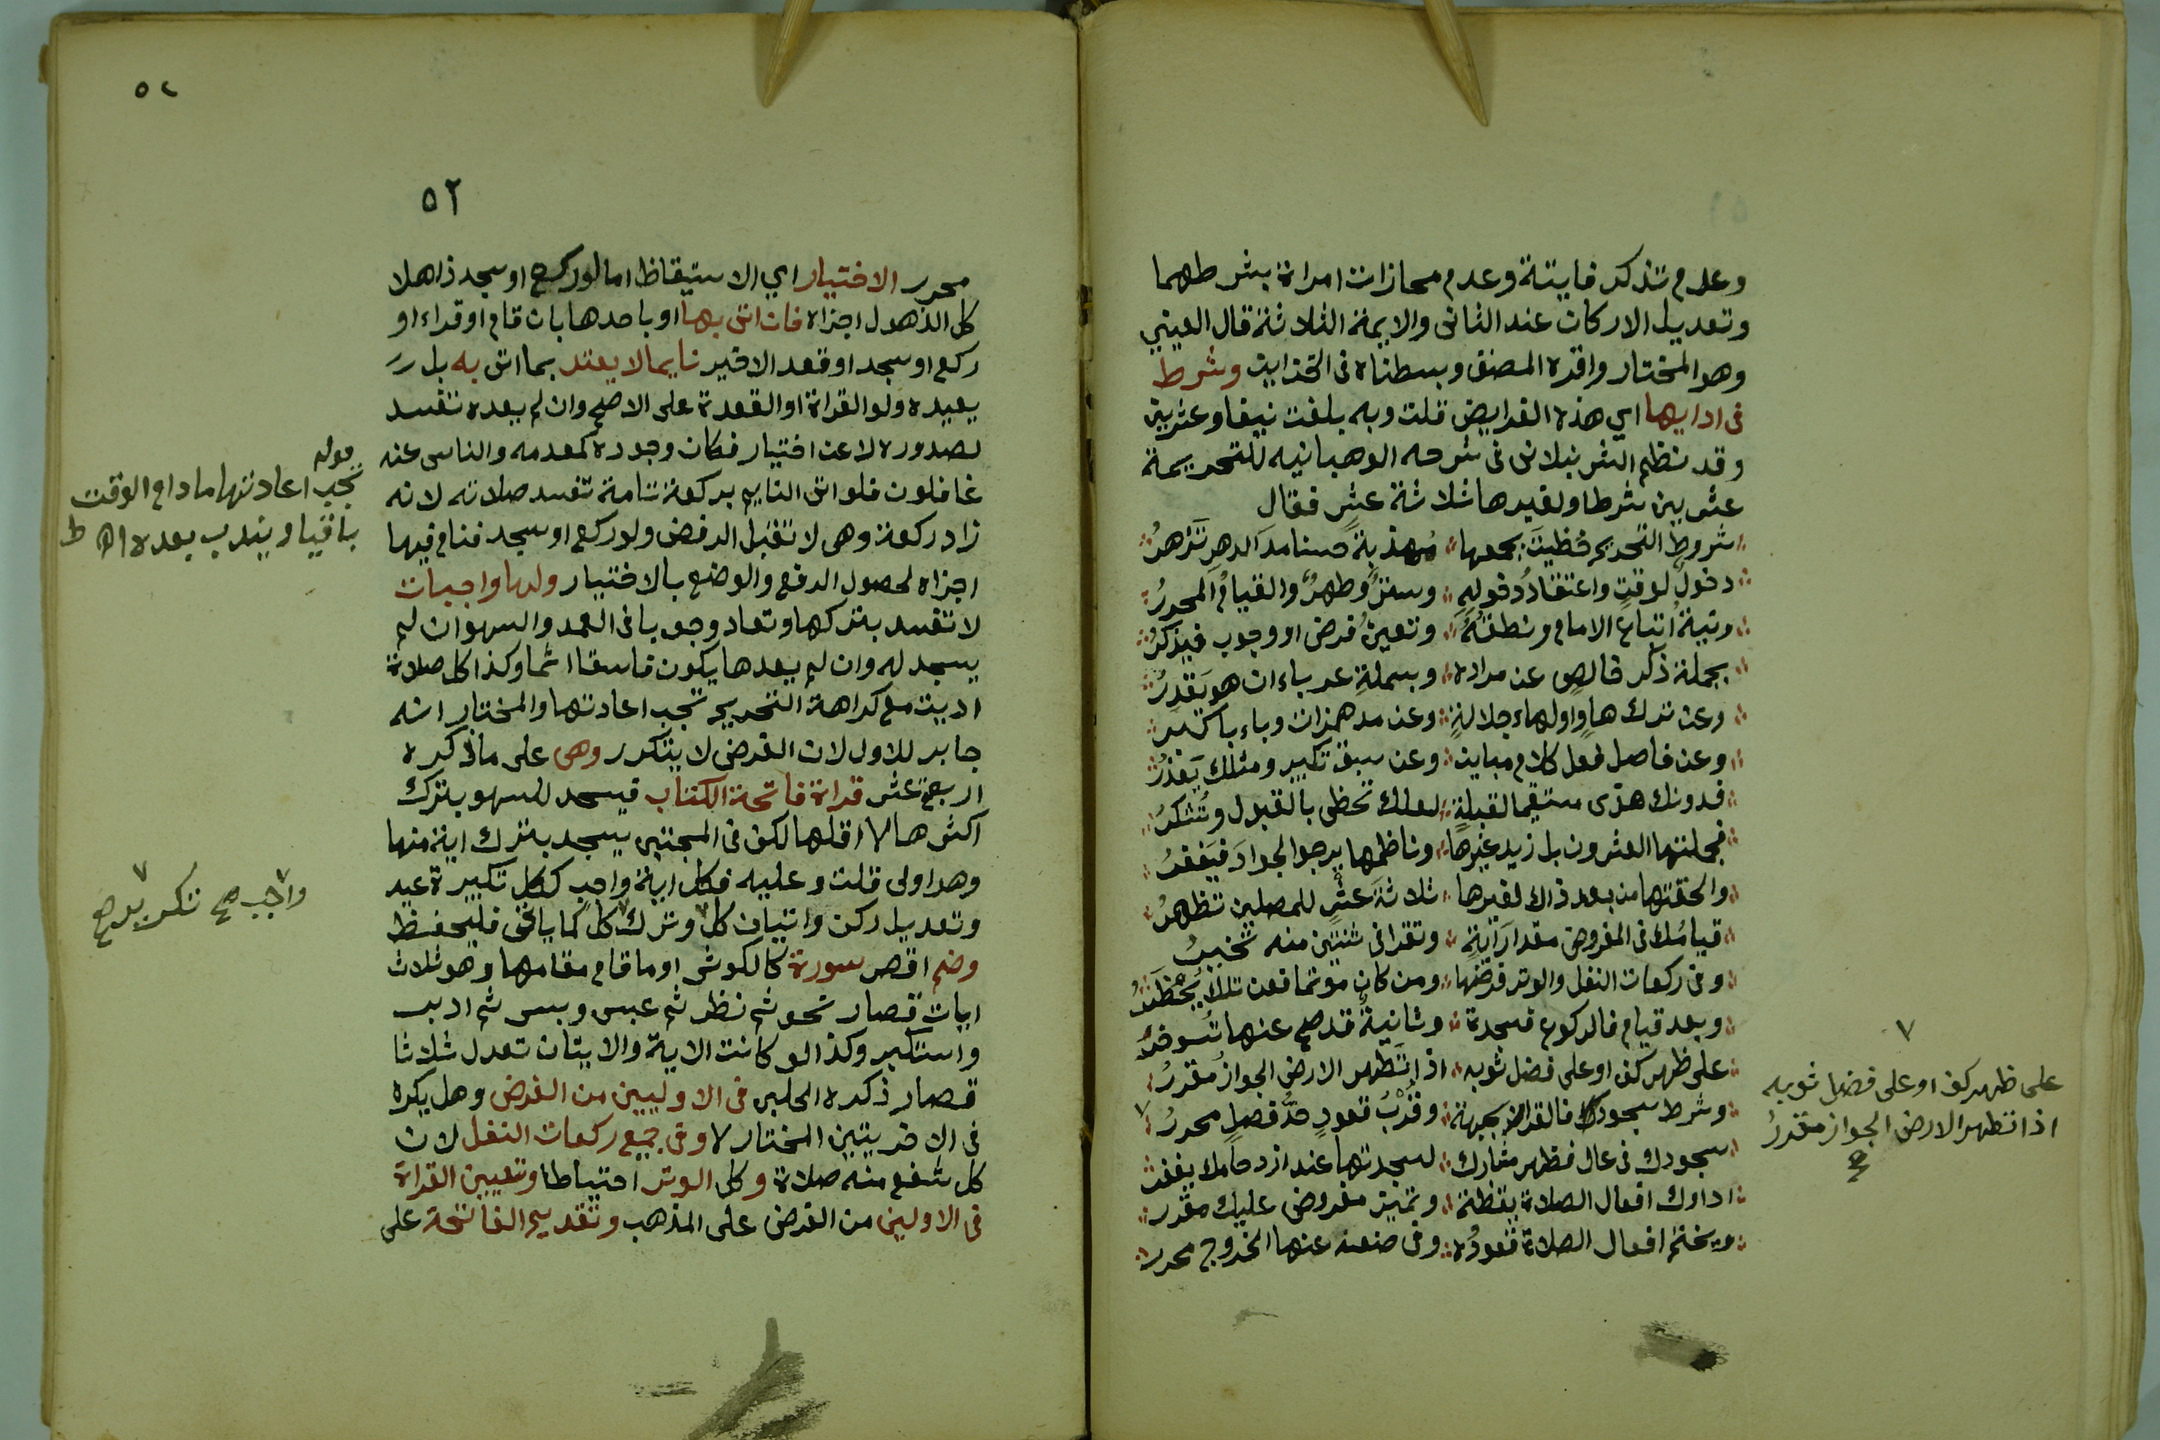 وعدم تذكر فايتة وعدم محاذات امراة بشرطهما
وتعديل الاركان عند الثاني والايمة الثلاثة قال العيني
وهو المختار واقره المصنف وبسطناه في الخزاين وشرط
في ادايها اي هذه الفرايض قلت وبه بلغت نيفا وعشرين
وقد نظم الشرنبلالي في شرحه الوهبانيه للتحريمة
عشرين شرطا ولغيرها ثلاثة عشر فقال
شروط التحريم حظيت بجمعها مهذبة حسنا مدا الدهر تزهر
دخول لوقت واعتقاد دخوله وستر وطهر والقيام المحرر
ونية اتباع الامام ونطقه وتعين فرض او وجوب فيذكر
بجملة ذكر خالص عن مراده وبسملة عرباء ان هو يقدر
وعن ترك هاو اولهاء جلالة وعن مد همزات وباء باكبر
وعن فاصل فعل كلام مباين وعن سبق تكبير ومثلك يعذر
فدونك هذي مستقيما لقبلة لعلك تحظى بالقبول وتشكر
فجملتها العشرون بل زيد غيرها وناظمها يرجو الجواد فيغفر
والحقتها من بعد ذاك لغيرها ثلاثة عشر للمصلين تظهر
قيامك في المفروض مقدار اية وتقرا في ثنتين منه تخير
وفي ركعات النفل والوتر فرضها ومن كان موتما فعن تلك يحظر
وبعد قيام فالركوع فسجدة وثانية قد صح عنها توخر
على ظهر كف او على فضل ثوبه اذا تطهر الارض الجواز مقرر
وشرط سجودك فالقرار بجبهة وقرب قعود حد فصل محرر
سجودك في عال فظهر مشارك لسجدتها عند ازدحامك يغفر
اداوك افعال الصلاة بيقظة وتميز مفروض عليك مقرر
ويختم افعال الصلاة قعوده وفي صنعه عنها الخروج محرر
٧
على ظهر كف او على فضل ثوبه
اذا تطهر الارض الجواز مقرر
صح
٥٢
٥٢
محرر الاختيار اي الاستيقاظ اما لو ركع او سجد ذاهلا
كل الذهول اجزاه فان اتى بها او باحدها بان قام او قراء او
ركع او سجد او قعد الاخير نايما لا يعتد بما اتى به بل
يعيده ولو القراة او القعدة على الاصح وان لم يعده تفسد
لصدوره لا عن اختيار فكان وجوده كعدمه والناس عنه
غافلون فلو اتى النايم بركعة تامة تفسد صلاته لانه
زاد ركعة وهي لا تقبل الرفض ولو ركع او سجد فنام فيها
اجزاه لحصول الرفع والوضع بالاختيار ولها واجبات
لا تفسد بتركها وتعاد وجوبا في العمد والسهو ان لم
يسجد له وان لم يعدها يكون فاسقا اثما وكذا كل صلاة
اديت مع كراهة التحريم تجب اعادتها والمختار انه
جابر للاول لان الفرض لا يتكرر وهي على ما ذكره
اربعة عشر قراة فاتحة الكتاب فيسجد للسهو بترك
اكثرها لا اقلها لكن في المجتبى يسجد بترك اية منها
وهو اولى قلت وعليه فكل اية واجب ككل تكبيرة عيد
وتعديل ركن واتيان كل وترك كل كما ياتي فليحفظ
وضم اقصر سورة كالكوثر او ما قام مقامها وهو ثلاث
ايات قصار نحو ثم نظر ثم عبس وبسر ثم ادبر
واستكبر وكذا لو كانت الاية والايتان تعدل ثلاثا
قصار ذكره الحلبي في الاوليين من الفرض وهل يكره
في الاخريتين المختار لا وفي جميع ركعات النفل لان
كل شفع منه صلاة وكل الوتر احتياطا وتعيين القراة
في الاولين من الفرض على المذهب وتقديم الفاتحة على
قوله
تجب اعادتها ما دام الوقت
باقيا ويندب بعده اه ط
واجب صح تكرير صح